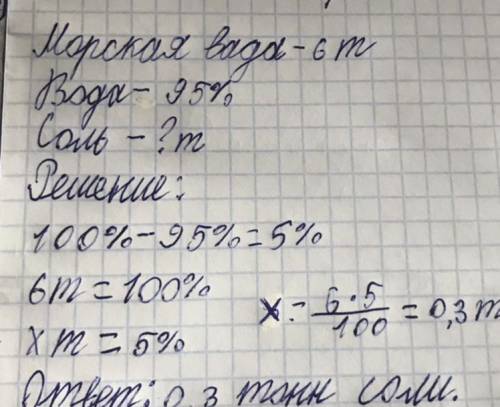 Морская вада - 6 т
Вода - 95%
Соль - ? т
Решение:
100% - 95% = 5%
6т = 100%
x т = 5%
x = 6·5/100 = 0,3 т
Ответ: 0,3 тонн соли.